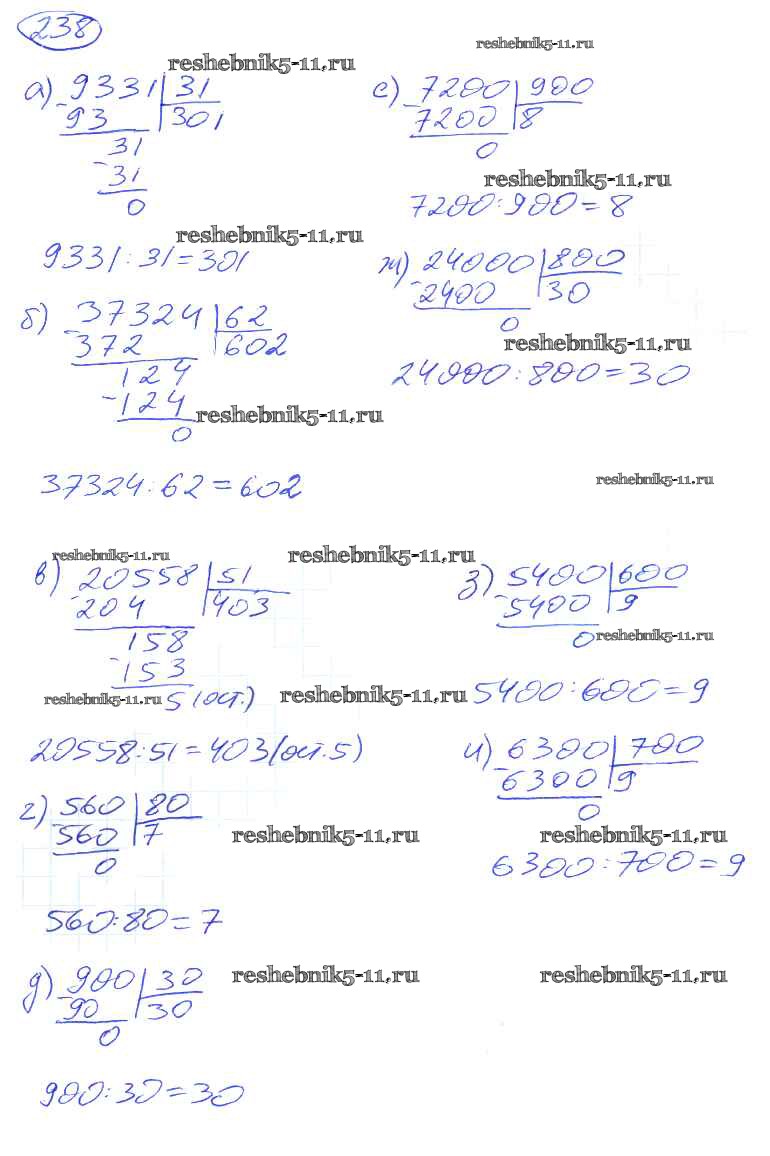 238
reshebnik5-11.ru
reshebnik5-11.ru
а) 9331 31
- 93 301
31
- 31
0
reshebnik5-11.ru
9331 : 31 = 301
б) 37324 62
- 372 602
124
- 124
0
reshebnik5-11.ru
37324 : 62 = 602
reshebnik5-11.ru
reshebnik5-11.ru
в) 20558 51
- 204 403
158
- 153
reshebnik5-11.ru 5 (ост.)
reshebnik5-11.ru
20558 : 51 = 403 (ост. 5)
г) 560 80
- 560 7
0
reshebnik5-11.ru
560 : 80 = 7
д) 900 30
- 90 30
0
reshebnik5-11.ru
900 : 30 = 30
е) 7200 900
- 7200 8
0
reshebnik5-11.ru
7200 : 900 = 8
ж) 24000 800
- 2400 30
0
reshebnik5-11.ru
24000 : 800 = 30
reshebnik5-11.ru
з) 5400 600
- 5400 9
0
reshebnik5-11.ru
5400 : 600 = 9
и) 6300 700
- 6300 9
0
reshebnik5-11.ru
6300 : 700 = 9
reshebnik5-11.ru